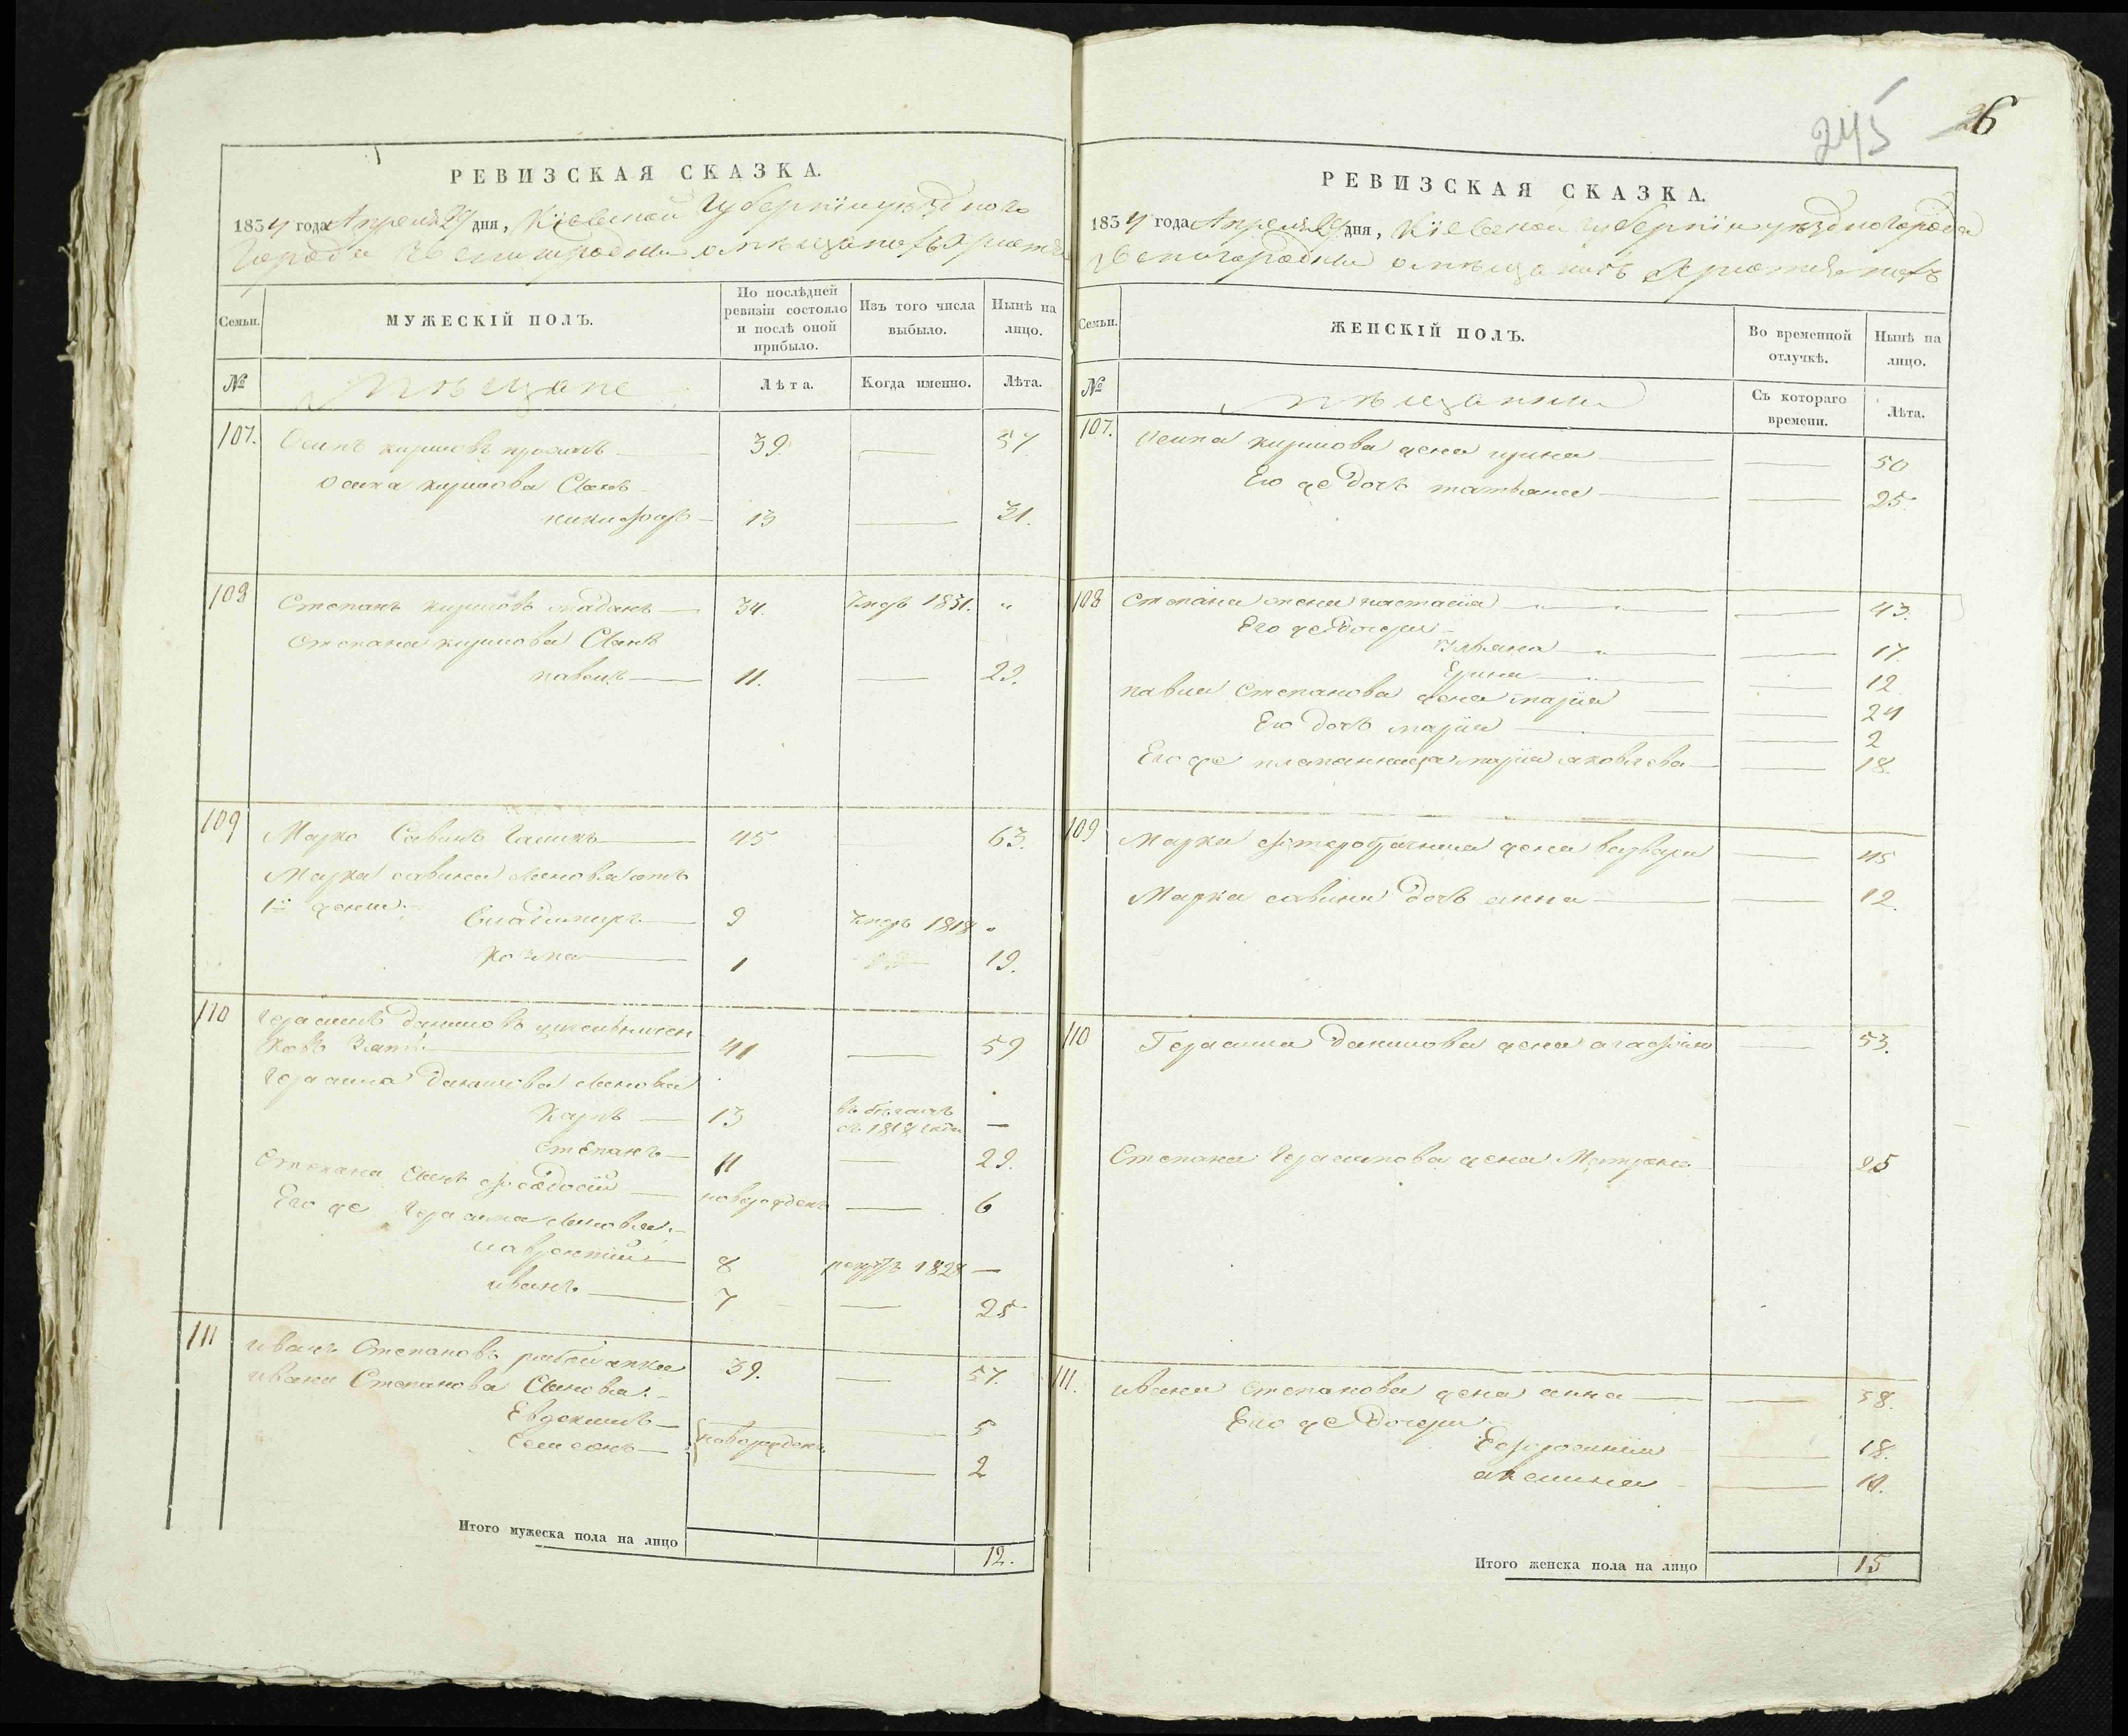 245
26
РЕВИЗСКАЯ СКАЗКА.
1834 года Апреля 27 дня, Кіевской Губерніи уѣзднаго
Города Звенигородки о мѣщанахъ христіа
Семьи.
МУЖЕСКІЙ ПОЛЪ.
По послѣдней ревизіи состояло и послѣ оной прибыло.
Изъ того числа выбыло.
Нынѣ на лицо.
№
мѣщане
Лѣта.
Когда именно.
Лѣта.
107. Осипъ кириловъ 39 57
Осипа кирилова Сынъ
никифоръ 13 31.
108 Степанъ кириловъ 34. умеръ 1831. "
Степана кирилова Сынъ
павелъ 11. 29.
109 Марко Савинъ 45 63.
Марка савина Сыновья отъ
1й жены
Владимиръ 9 умеръ 1818 "
Козма 1 19.
110 Герасимъ даниловъ
зять 41 59
Герасима Данилова Сыновья
Карпъ 13 въ бѣгахъ
съ 1818 года —
степанъ 11 29.
Степана Сынъ феодосій новорожденъ 6
Его же Герасима Сыновья
лаврентій 8 рекрутъ 1828 —
иванъ 7 25
111 иванъ Степановъ 39. 57.
ивана Степанова Сыновья
Евдокимъ 5
новорожденъ
Семенъ 2
Итого мужеска пола на лицо
12.
РЕВИЗСКАЯ СКАЗКА.
1834 года Апреля 27 дня, Кіевской губерніи уѣзднаго города
Звенигородки о мѣщанахъ христіанахъ
Семьи.
ЖЕНСКІЙ ПОЛЪ.
Во временной отлучкѣ.
Нынѣ на лицо.
№
мѣщанки
Съ котораго времени.
Лѣта.
107. Осипа кирилова жена ирина 50
Его же дочь татьяна 25.
108 степана жена настасія 43.
Его же дочери
Ульяна 17.
Ерина 12
павла Степанова жена марія 24
Его дочь марія 2
Его же племянница марія яковлева 18.
109 Марки жена варвара 45
Марка савина дочь анна 12.
110 Герасима Данилова жена агафія 53.
Степана Герасимова жена Матрена 25
111. ивана степанова жена анна 38.
Его же дочери
Ефросинія 18.
акелина 10.
Итого женска пола на лицо
15